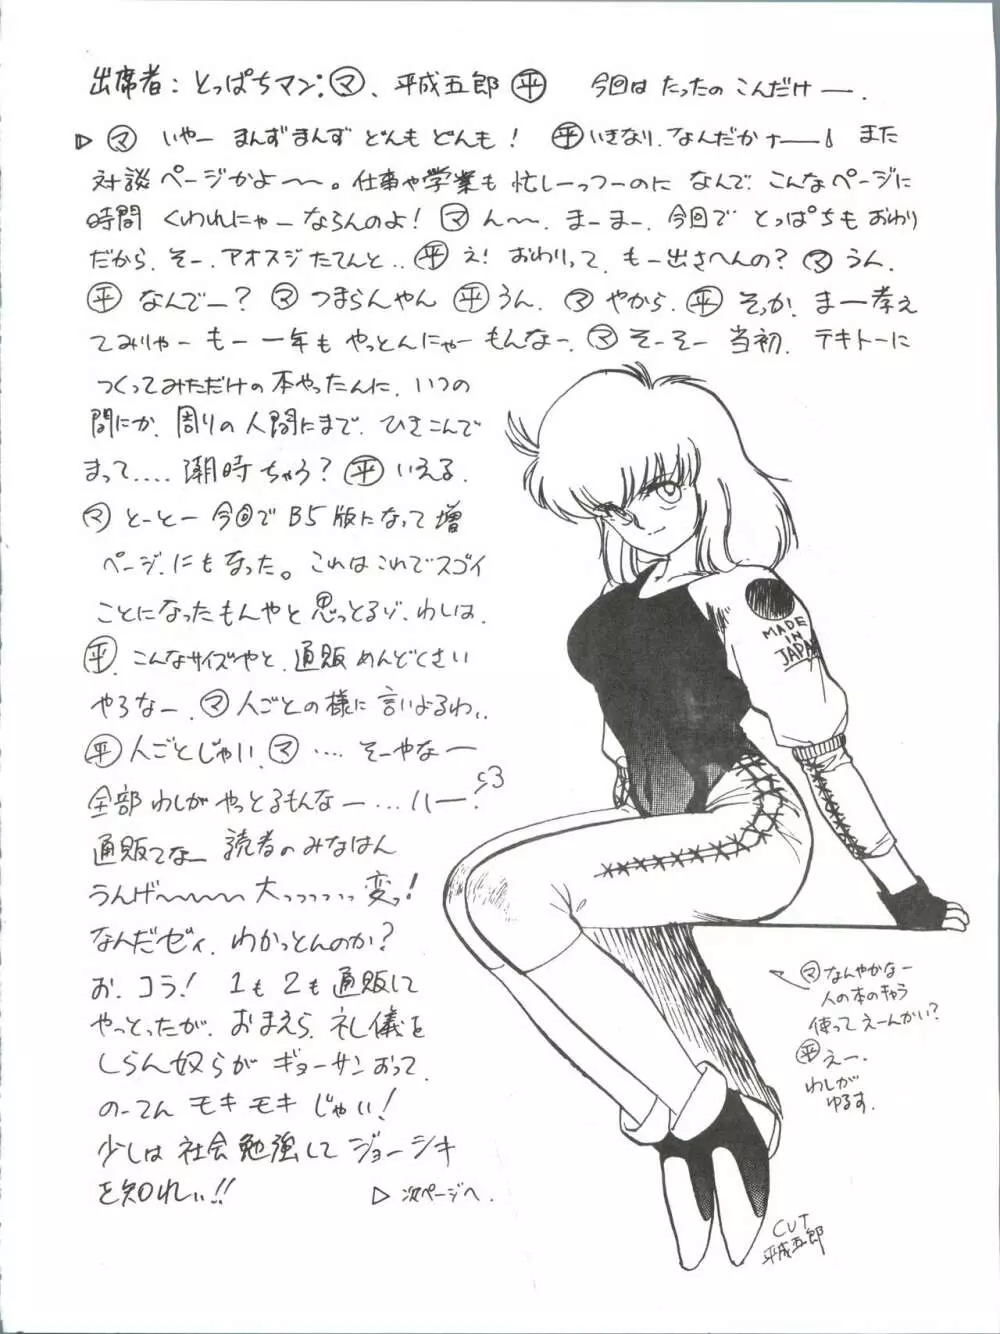 出席者：とっぱちマン：㋮、平成五郎㊥ 今回は たったの こんだけー.
▷ ㋮ いやー まんずまんず どんも どんも！ ㊥いきなり、なんだかナー！ また
対談ページかよ〜〜。仕事や学業も 忙しーっつーのに なんで、こんなページに
時間 くわれにゃー ならんのよ！ ㋮ ん〜〜、まーまー、今回で とっぱちも おわり
だから、そー、アオスジ たてんと‥ ㊥ え！ おわりって、もー出さへんの？ ㋮ うん、
㊥ なんでー？ ㋮ つまらんやん ㊥ うん、㋮ やから、㊥ そっか、まー考え
てみりゃー もー 一年も やっとんにゃー もんなー、㋮ そーそー 当初、テキトーに
つくってみただけの 本やったんに、いつの
間にか、周りの人間にまで、ひきこんで
まって‥‥ 潮時 ちゃう？ ㊥ いえる、
㋮ とーとー 今回で B5版になって 増
ページ、にも なった。これはこれでスゴイ
ことに なったもんやと、思っとるゾ、わしは、
㊥、こんなサイズやと、通販 めんどくさい
やろなー、㋮ 人ごとの様に 言いよるわい、
㊥ 人ごとじゃい、㋮ ‥‥ そーやなー
全部 わしが やっとるもんなー‥‥ハー！
通販てなー 読者の みなはん
うんげ〜〜〜〜 大っっっっっ 変っ！
なんだゼィ、わかっとんのか？
お、コラ！ 1も 2も 通販して
やっとったが、おまえら、礼儀を
しらん奴らが ギョーサン おって、
のーてん モキモキ じゃい！
少しは 社会勉強して ジョーシキ
を知れい!!
▷ 次ページへ.
MADE
IN
JAPAN
㋮ なんやかなー
人の本のキャラ
使って えーんかい？
㊥ えー、
わしが
ゆるす.
CUT
平成五郎